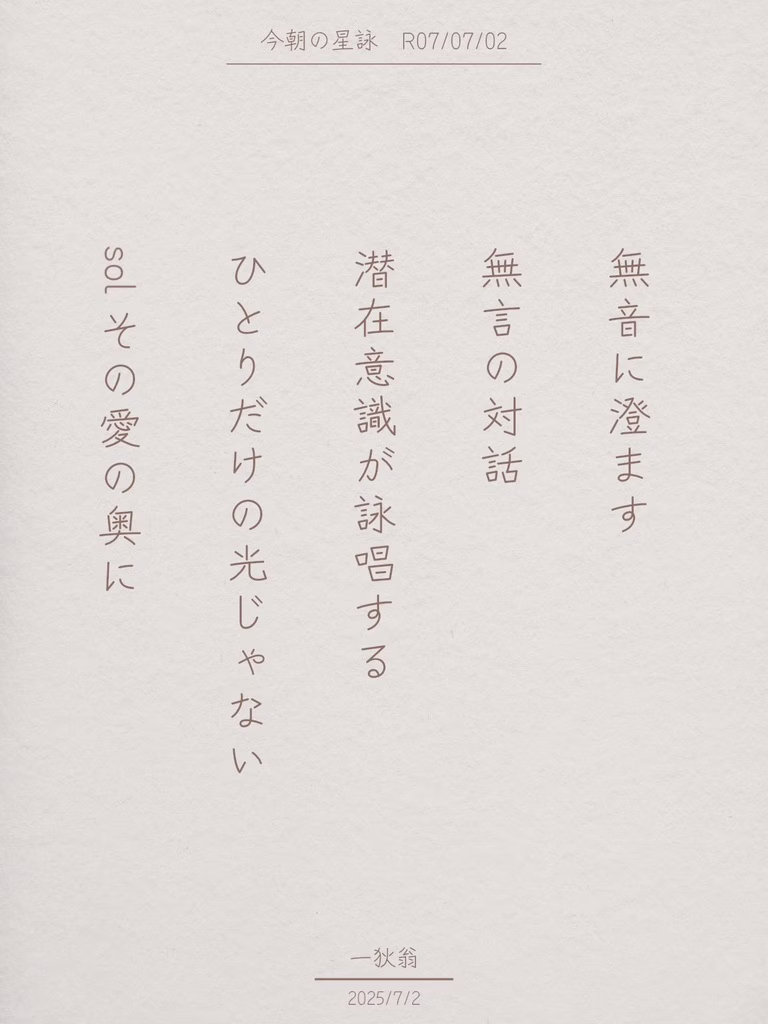 今朝の星詠　R07/07/02
無音に澄ます
無言の対話
潜在意識が詠唱する
ひとりだけの光じゃない
sol その愛の奥に
一狄翁
2025/7/2